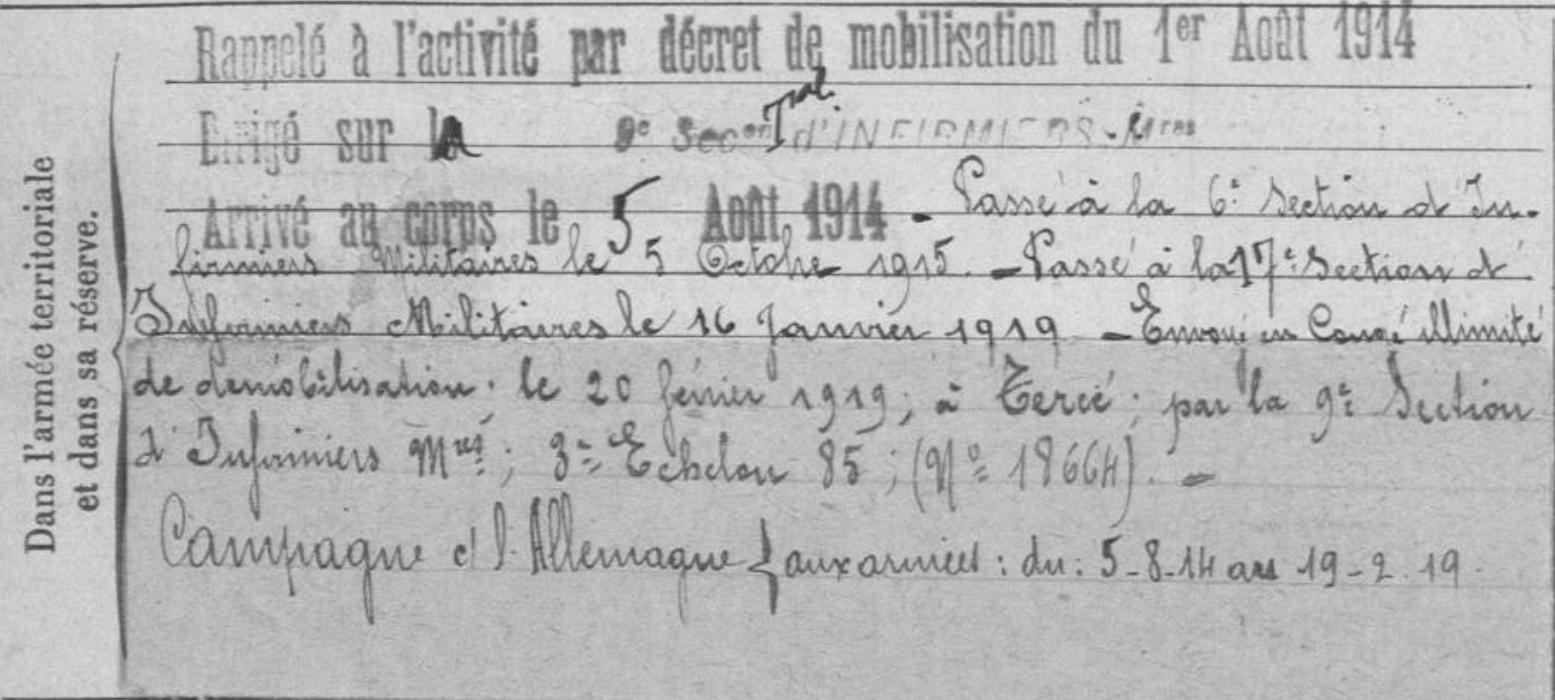 Dans l'armée territoriale
et dans sa réserve.
Rappelé à l'activité par décret de mobilisation du 1er Août 1914
Dirigé sur la 9e Secon Tale d'INFIRMIERS-Mres
Arrivé au corps le 5 Août 1914 - Passé à la 6e Section d'In-
firmiers Militaires le 5 Octobre 1915. - Passé à la 17e Section d'
Infirmiers Militaires le 16 Janvier 1919 - Envoyé en Congé illimité
de démobilisation. le 20 février 1919; à Tercé; par la 9e Section
d'Infirmiers Mres; 3e Echelon 85; (No 18664). -
Campagne c/ l'Allemagne { aux armées : du : 5-8-14 au 19-2-19.